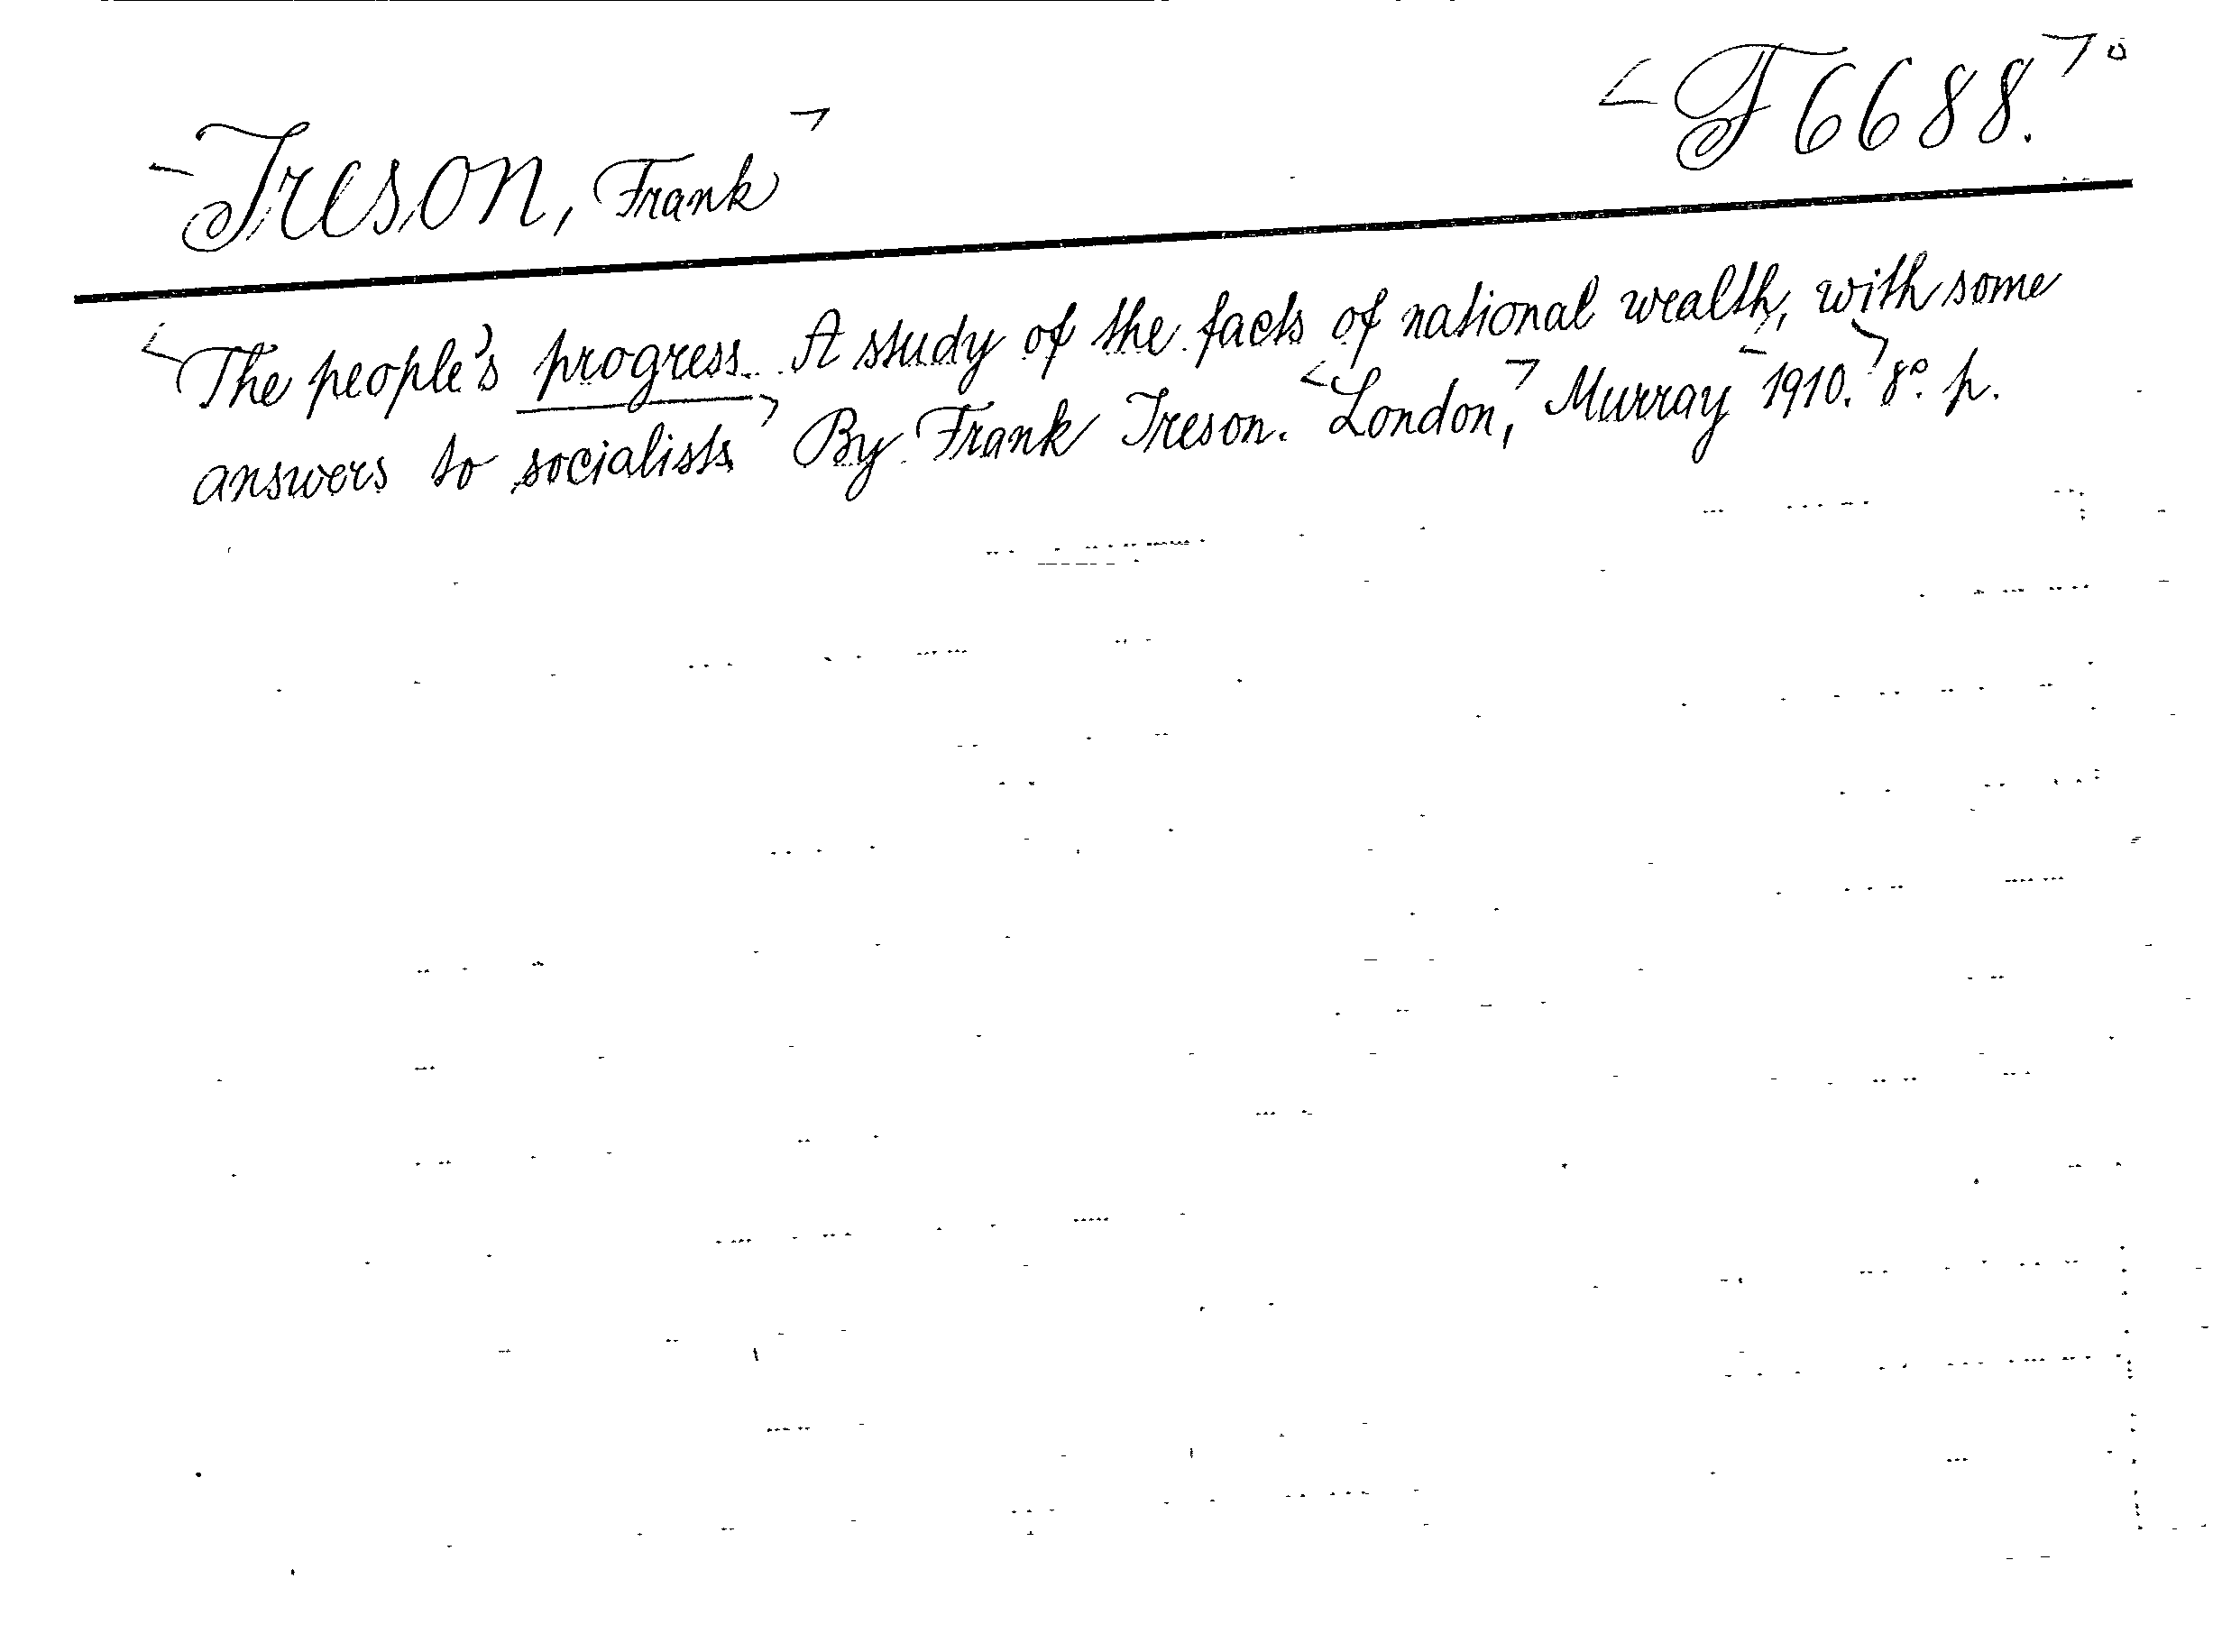 Ireson, Frank
F 6688.
The people's progress. A study of the facts of national wealth, with some
answers to socialists. By Frank Ireson. London, Murray 1910. 8°. p.